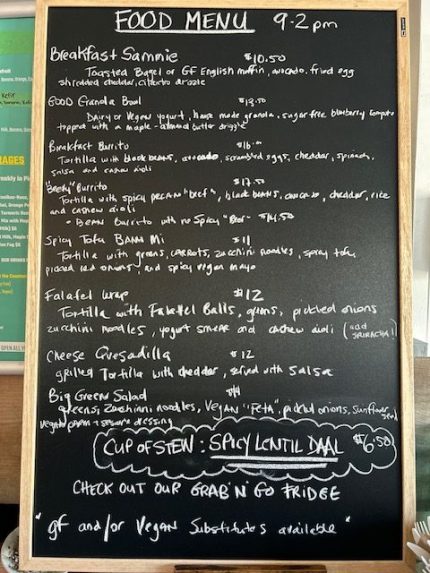 FOOD MENU 9-2pm
Breakfast Sammie $10.50
Toasted Bagel or GF English muffin, avocado, fried egg
shredded cheddar, cilantro drizzle
GOOD Granola Bowl
Dairy or Vegan yogurt, house made granola, sugar free blueberry compote
topped with a maple-almond butter drizzle
Breakfast Burrito
Tortilla with black beans, avocado, scrambled eggs, cheddar, spinach,
salsa and cashew aioli
"Beefy" Burrito
Tortilla with spicy pecan "beef", black beans, avocado, cheddar, rice
and cashew aioli
- BEAN Burrito with no Spicy "Beef"
Spicy Tofu BANH Mi $11
Tortilla with greens, carrots, zucchini noodles, spicy tofu,
pickled red onions and spicy vegan mayo
Falafel wrap $12
Tortilla with Falafel Balls, greens, pickled onions
zucchini noodles, yogurt smear and cashew aioli (add SRIRACHA!)
Cheese Quesadilla $12
grilled Tortilla with cheddar, served with Salsa
Big Green Salad
greens, Zucchini noodles, Vegan "FETA", pickled onions, sunflower seeds
vegan parm + sesame dressing
CUP OF STEW: SPICY LENTIL DAAL $6.50
CHECK OUT OUR GRAB 'N' GO FRIDGE
"gf and/or Vegan Substitutes available"
OPEN ALL